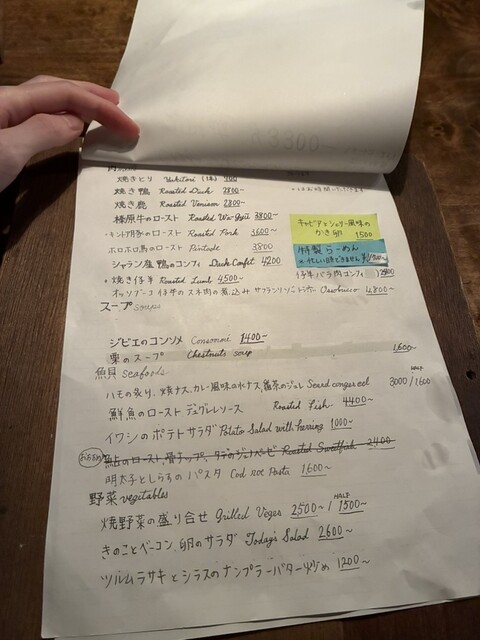 焼きとり Yakitori (1本) 700
焼き鴨 Roasted Duck 2800~
焼き鹿 Roasted Venison 2800~
榛原牛のロースト Roasted Wa-gyu 3800~
のロースト Roasted Pork 3600~
ホロホロ鳥のロースト Pintade 3800
シャラン産鴨のコンフィ Duck Confit 4200
・焼き仔羊 Roasted Lamb 4500~
オッソブーコ 仔牛のスネ肉の煮込み サフランリゾット Ossobuco 4800~
キャビアとシェリー風味の
かき卵 1500
特製らーめん
※忙しい時できません
仔羊バラ肉コンフィ
スープ soups
ジビエのコンソメ Consommé 1400~
栗のスープ Chestnuts soup 1600~
魚貝 seafoods
ハモの炙り、焼ナス、カレー風味の水ナス、番茶のジュレ Seard conger eel 3000 / HALF 1600
鮮魚のロースト デュグレレソース Roasted fish 4400~
イワシのポテトサラダ Potato Salad with herring 1000~
のロースト、骨チップ、 Roasted Sweetfish 2400
明太子としらすのパスタ Cod roe Pasta 1600~
野菜 vegetables
焼野菜の盛り合せ Grilled Veges 2500~ / HALF 1500~
きのことベーコン、卵のサラダ Today's Salad 2600~
ツルムラサキとシラスのナンプラーバター炒め 1200~